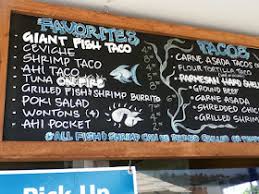 FAVORITES
GIANT FISH TACO
CEVICHE
SHRIMP TACO
AHI TACO
TUNA ON FIRE
GRILLED FISH SHRIMP BURRITO
POKI SALAD
WONTONS (4)
AHI POCKET
TACOS
CARNE ASADA TACOS
FLOUR TORTILLA TACO
PARMESAN HARD SHELL
GROUND BEEF
CARNE ASADA
SHREDDED CHICK
GRILLED SHRIM
ALL FISH SHRIMP CAN BE GRILLED OR
Pick Up